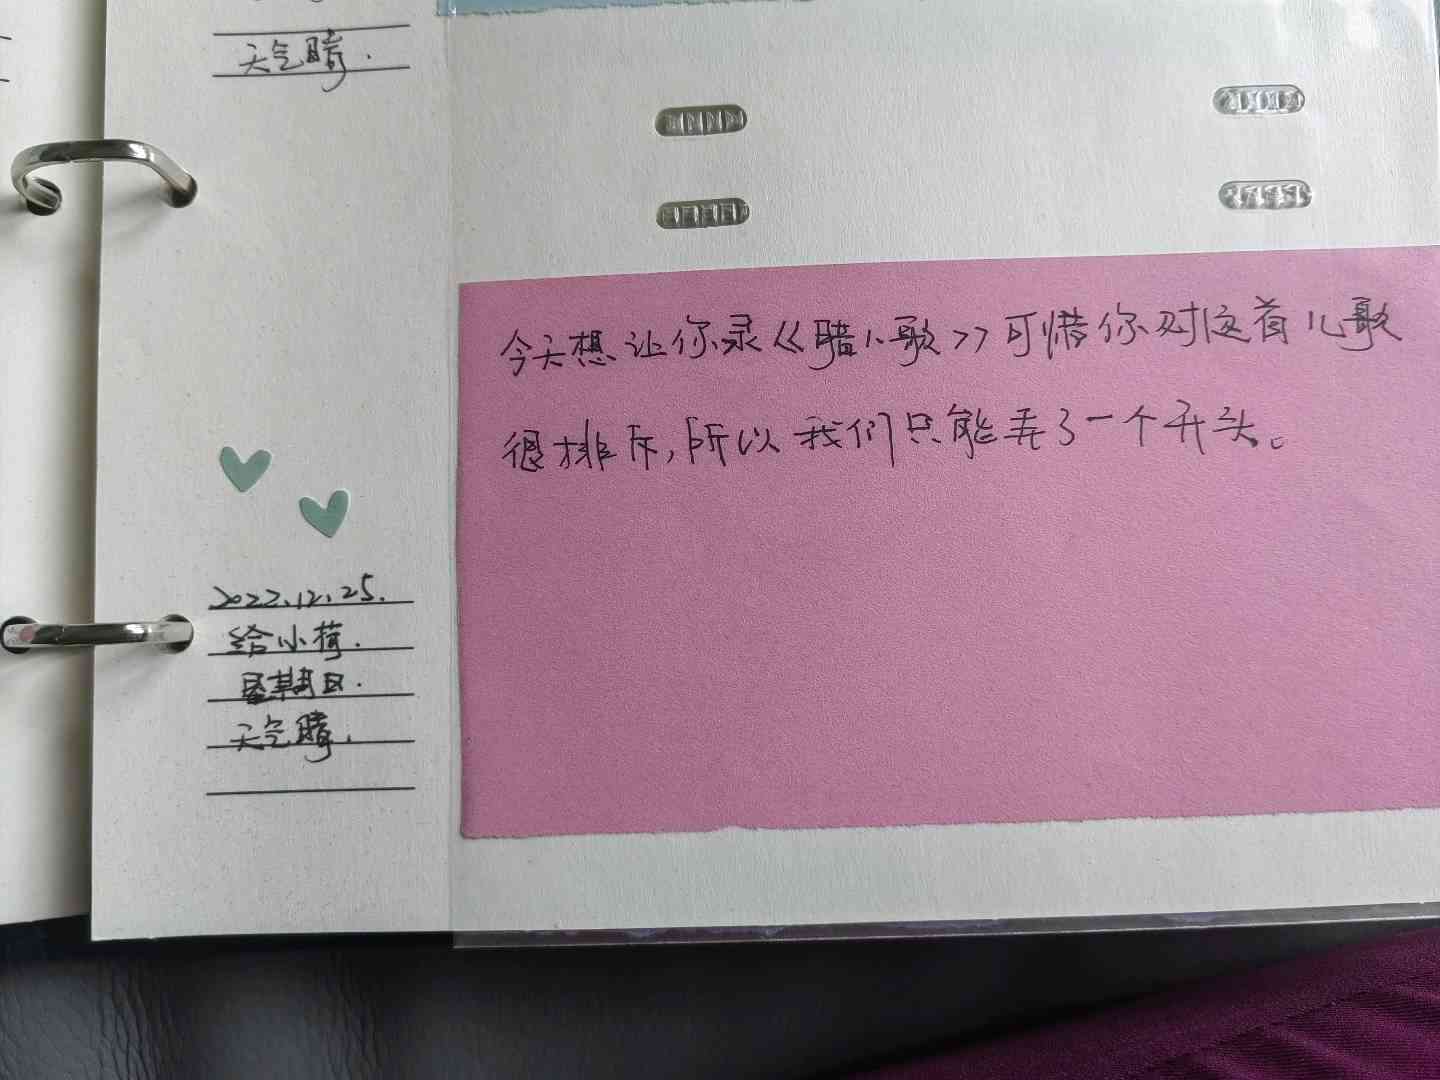 天气晴.
今天想让你录《腊八歌》可惜你对这首儿歌
很排斥,所以我们只能弄了一个开头。
2022.12.25.
给小荷.
星期日.
天气晴.